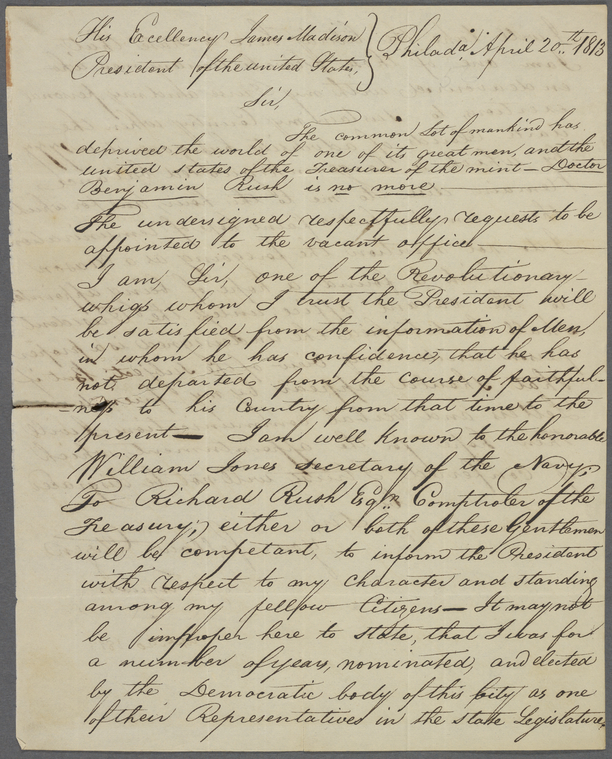 His Excellency James Madison } Philada. April 20th. 1813
President of the united States,
Sir,
The common Lot of mankind has
deprived the world of one of its great men, and the
united states of the Treasurer of the mint — Doctor
Benjamin Rush is no more.
The undersigned respectfully requests to be
appointed to the vacant office
I am, Sir, one of the Revolutionary
whigs whom I trust the President will
be satisfied from the information of Men,
in whom he has confidence, that he has
not departed from the course of faithful-
-ness to his Country from that time to the
present — I am well known to the honorable
William Jones secretary of the Navy;
To Richard Rush Esqr. Comptroler of the
Treasury; either or both of these Gentlemen
will be competant, to inform the President
with respect to my Character and standing
among my fellow Citizens — It may not
be improper here to state, that I was for
a number of years, nominated, and elected
by the Democratic body of this City as one
of their Representatives in the state Legislature,